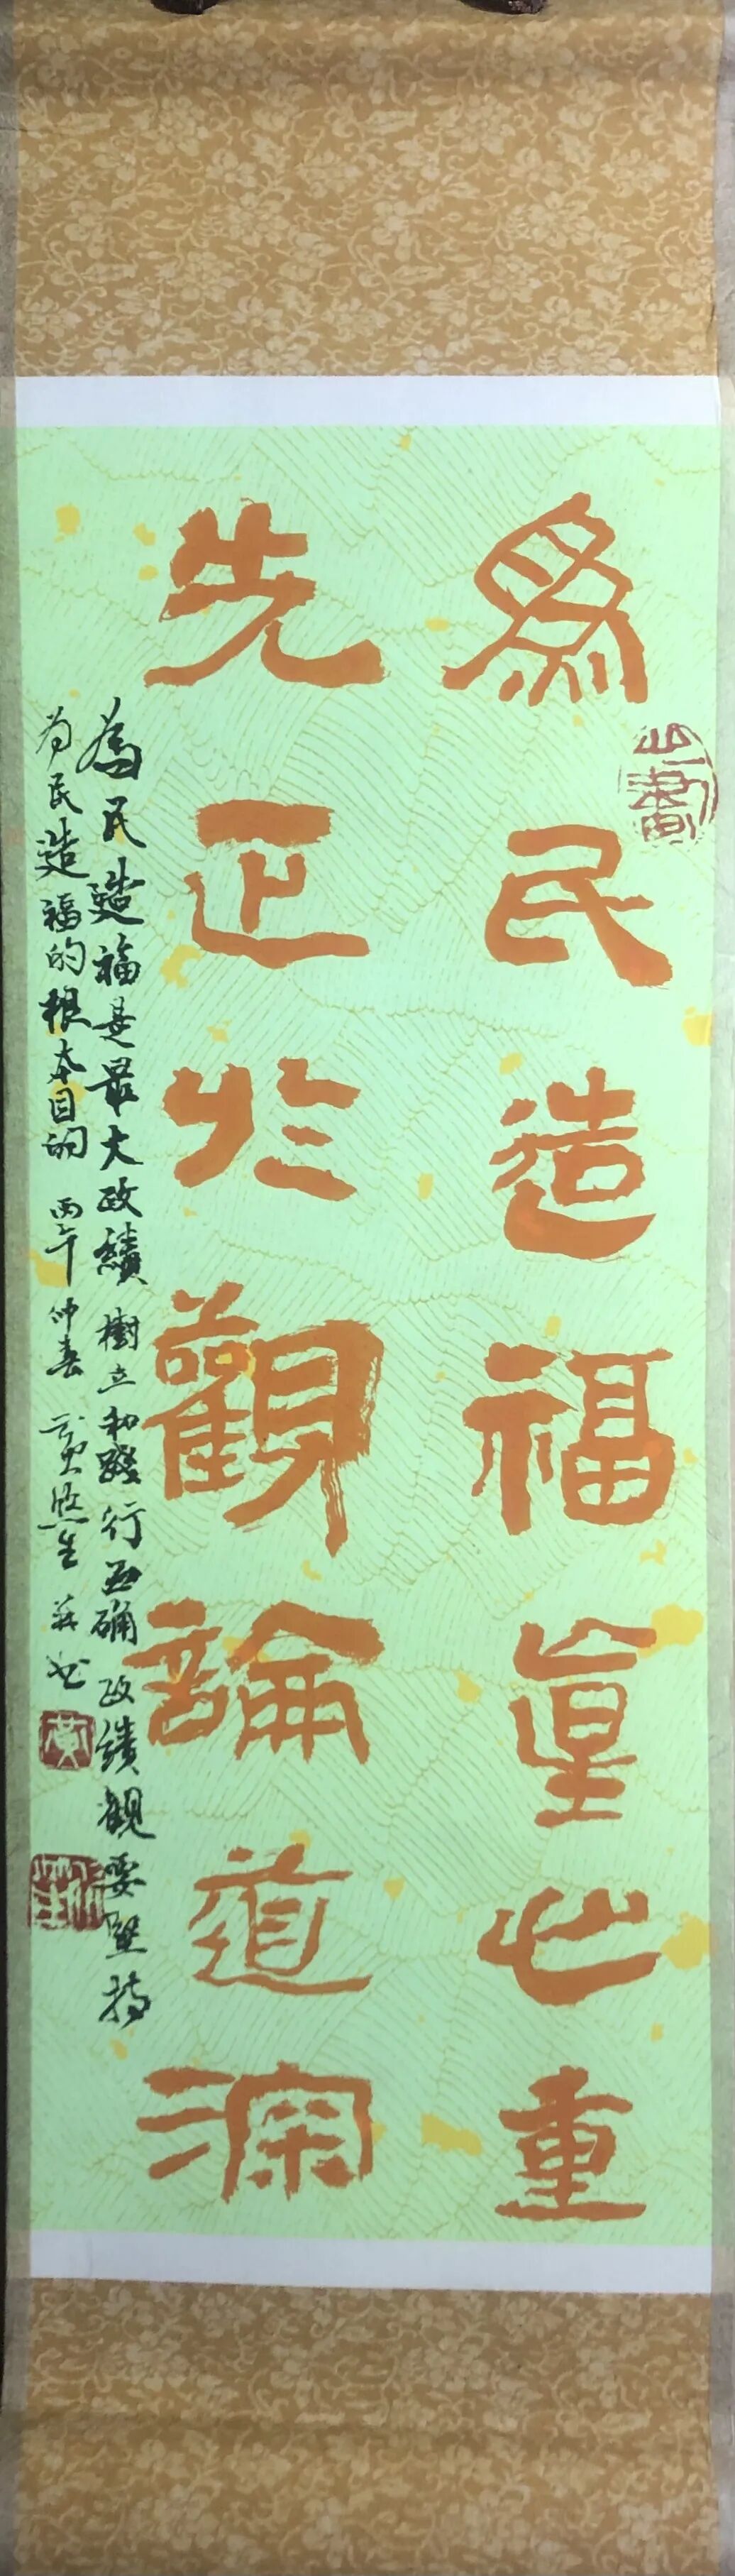 為民造福真心重
先正於觀論道深
為民造福是最大政績樹立和踐行正确政績觀要堅持
为民造福的根本目的 丙午仲春 黄悠生并书